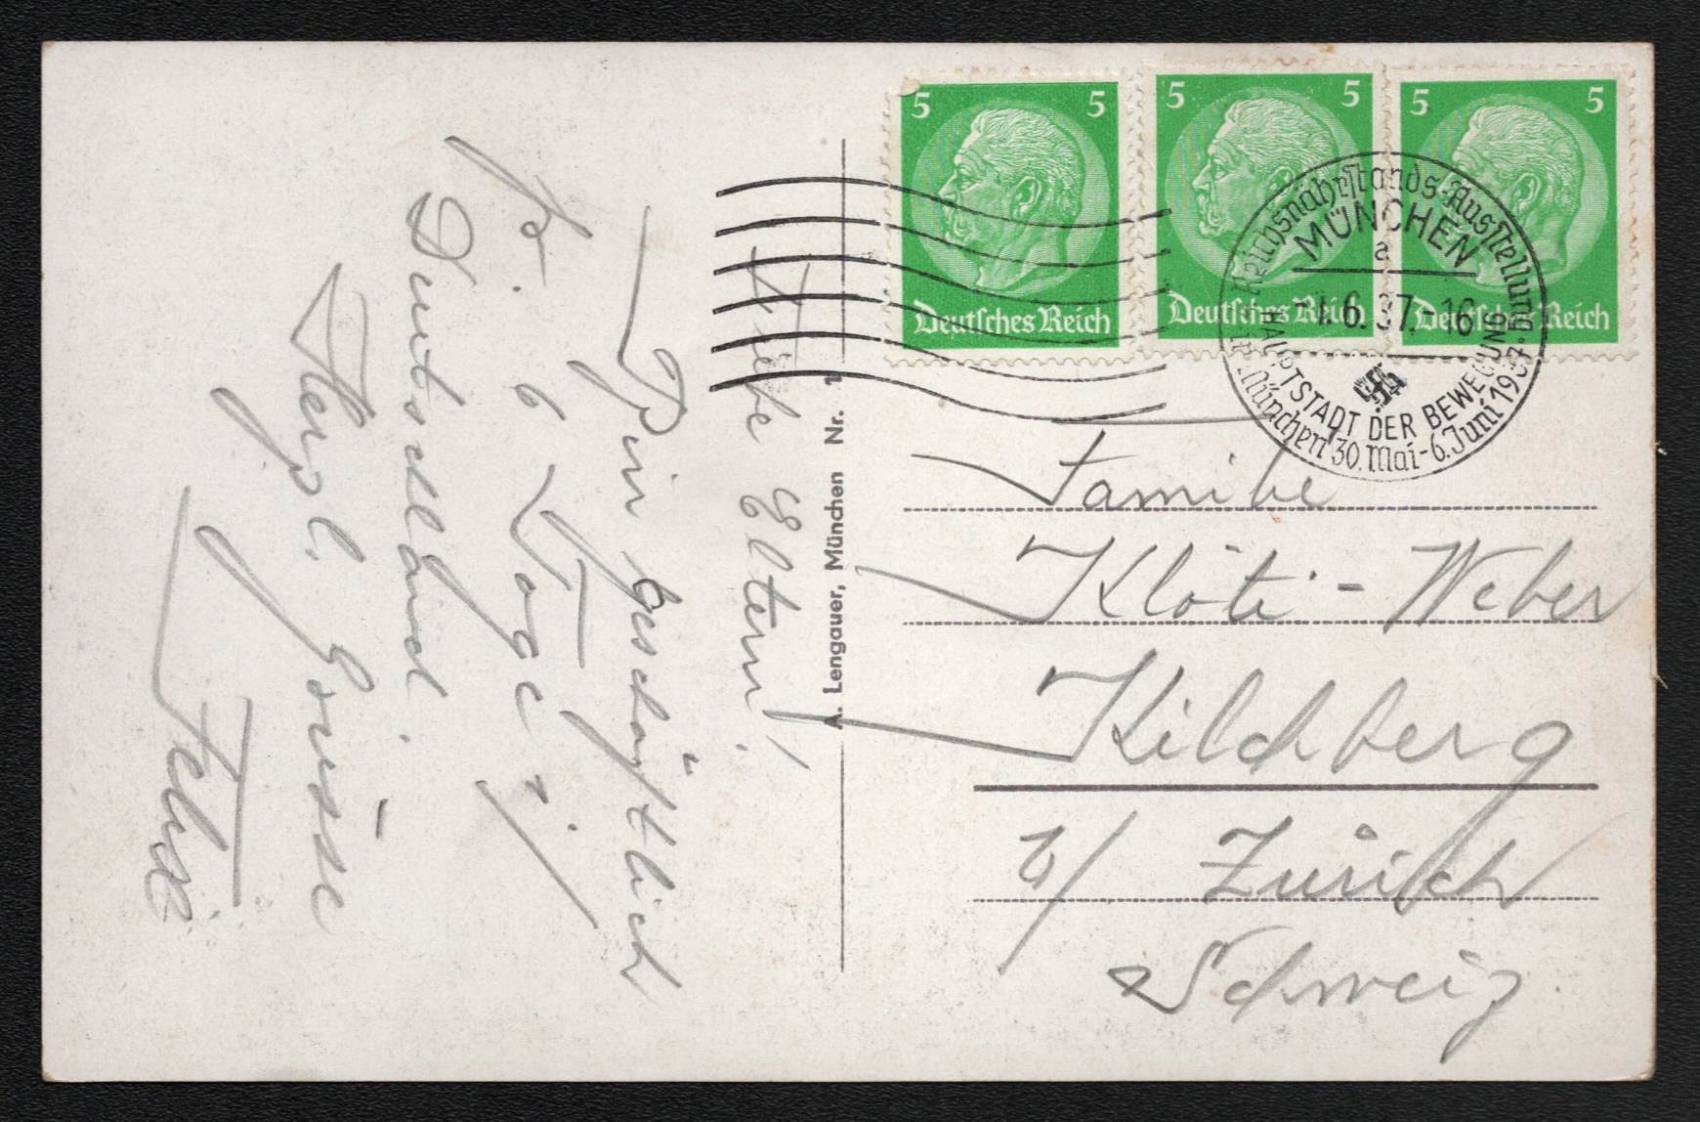 Liebe Eltern!
Bin geschäftlich
6 Tage i/
Deutschland.
Herzl. Grüsse
Felix
A. Lengauer, München Nr.
5 5
Deutsches Reich
5 5
Deutsches Reich
5 5
Deutsches Reich
Reichsnährstands-Ausstellung
MÜNCHEN
a
-1.6.37.-16
HAUPTSTADT DER BEWEGUNG
München 30. Mai-6. Juni 1937.
Familie
Klöti-Weber
Kilchberg
b/ Zürich
Schweiz.